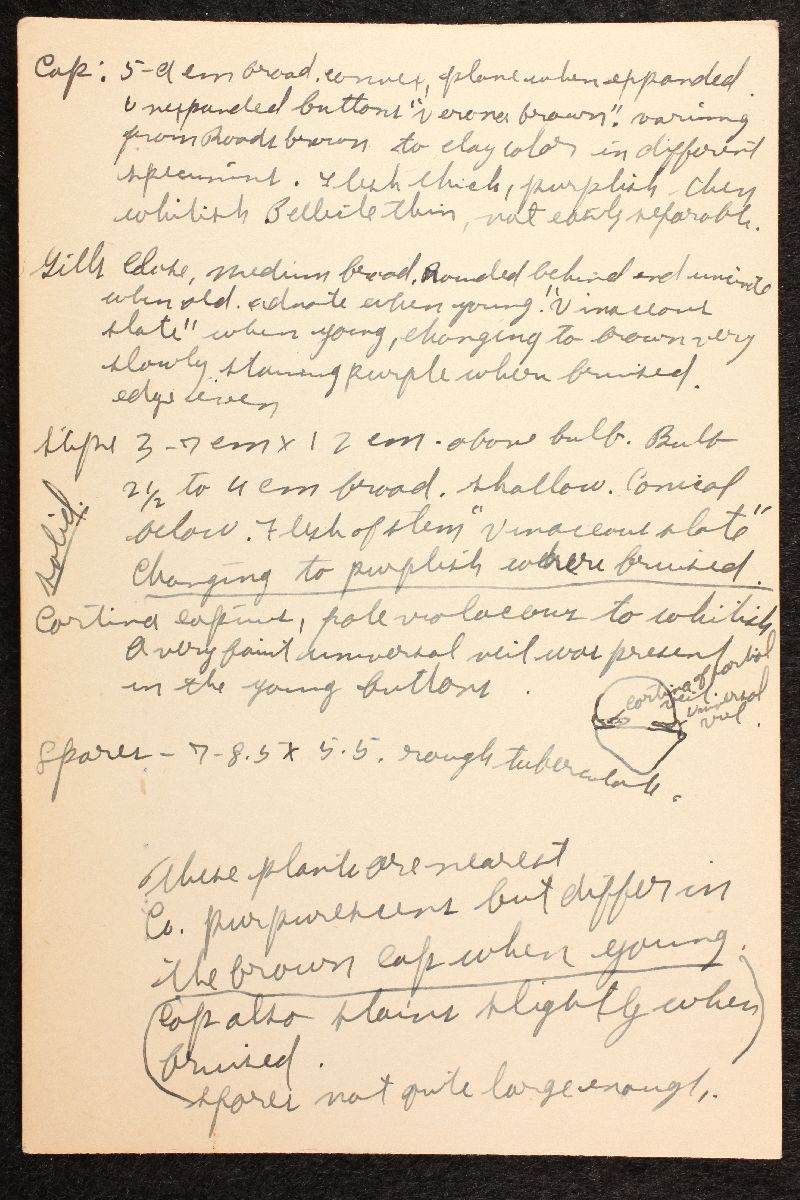 Cap: 5-9 cm broad. convex, plane when expanded.
Unexpanded buttons "Verona brown". varining
from Roods brown to clay color in different
specimins. Flesh thick, purplish then
whitish Pellicle thin, not easily separable.
Gills Close, medium broad. Rounded behind and
when old. adnate when young. "Vinaceous
slate" when young, changing to brown very
slowly staining purple when bruised.
edge even
Stipe 3-7 cm x 1 2 cm. above bulb. Bulb
solid.
2½ to 4 cm broad. shallow. Conical
below. Flesh of stem "Vinaceous slate"
Changing to purplish where bruised.
Cortina copious, pale violaceous to whitish
A very faint universal veil was present
in the young buttons.
cortina of partial
veil.
universal
veil.
Spores - 7-8.5 x 5.5. rough tuberculate.
These plants are nearest
Co. purpurescens but differ in
the brown cap when young.
(Cap also stains slightly when
bruised.)
spores not quite large enough.